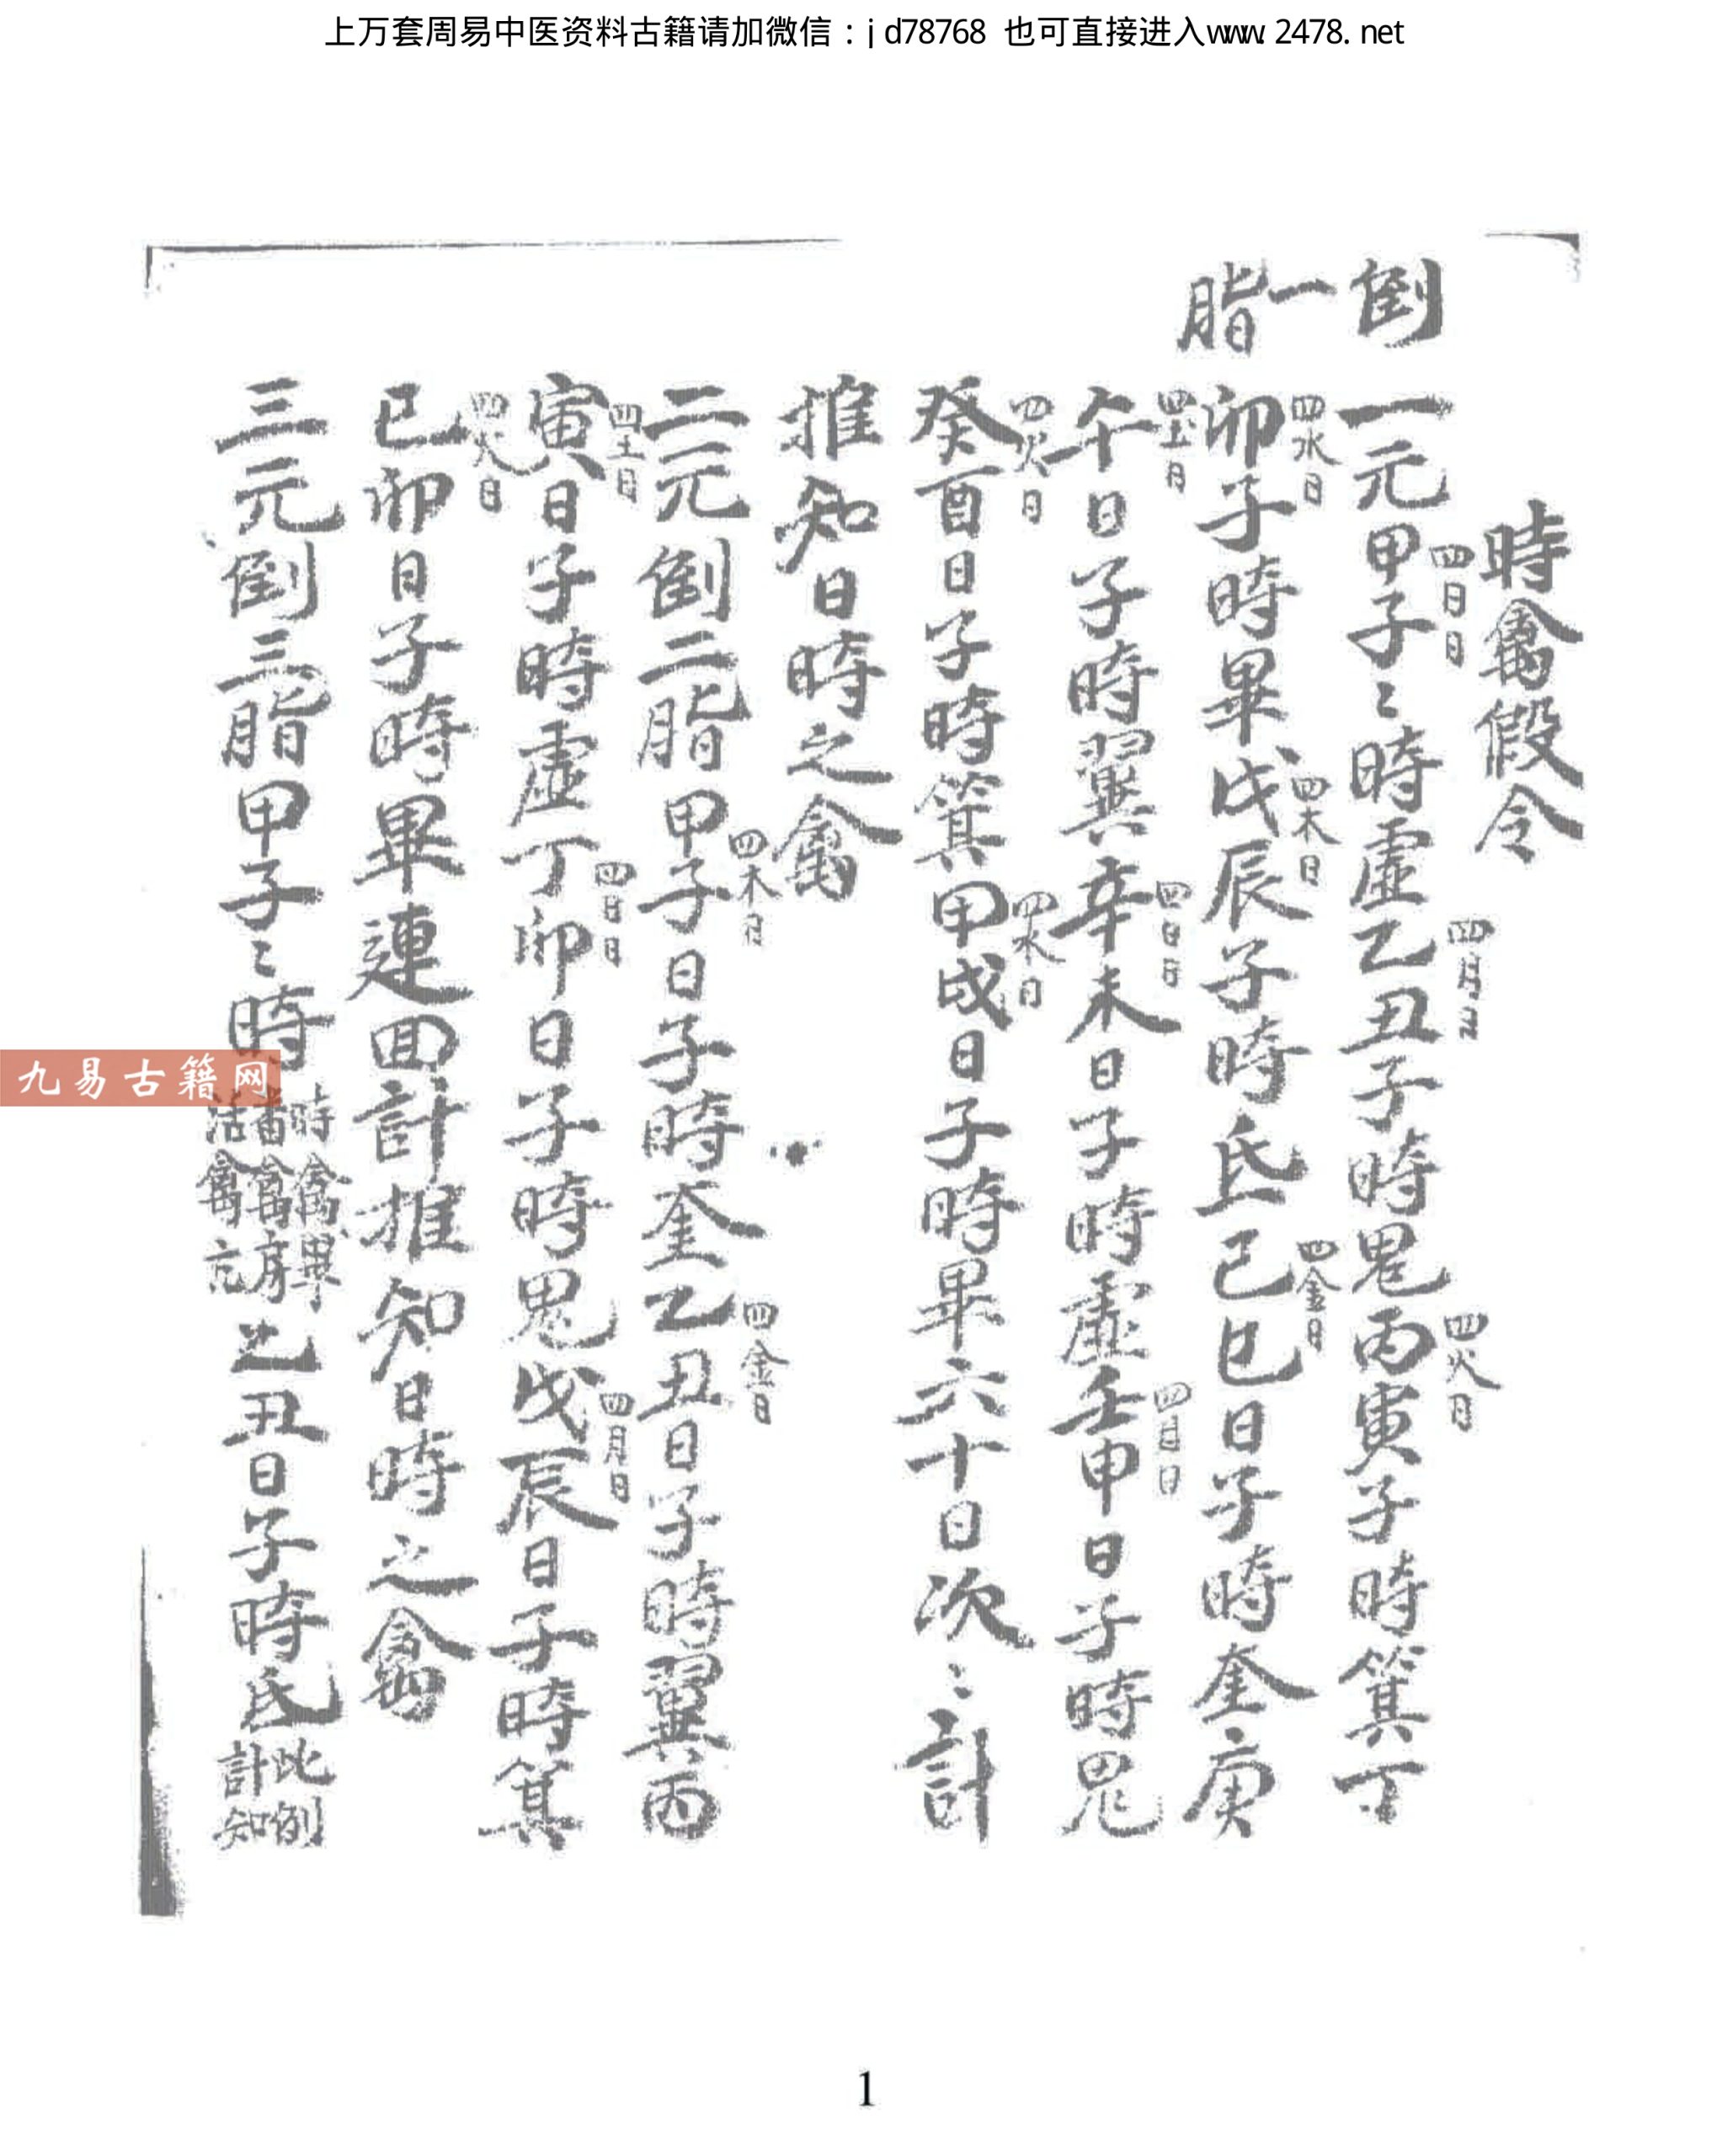 上万套周易中医资料古籍请加微信：jd78768 也可直接进入www.2478.net
時禽假令
倒一脂
一元甲子〻時虛乙丑子時鬼丙寅子時箕丁
四日日
四月日
四火日
卯子時畢戊辰子時氐己巳日子時奎庚
四水日
四木日
四金日
午日子時翼辛未日子時虛壬申日子時鬼
四土日
四日日
四月日
癸酉日子時箕甲戌日子時畢六十日次〻計
四火日
四水日
推知日時之禽
二元倒二脂甲子日子時奎乙丑日子時翼丙
四木日
四金日
寅日子時虛丁卯日子時鬼戊辰日子時箕
四土日
四日日
四月日
已卯日子時畢連回計推知日時之禽
四火日
三元倒三脂甲子〻時
時禽畢
番禽房
活禽亢
乙丑日子時氐
此例
計知
九易古籍网
1